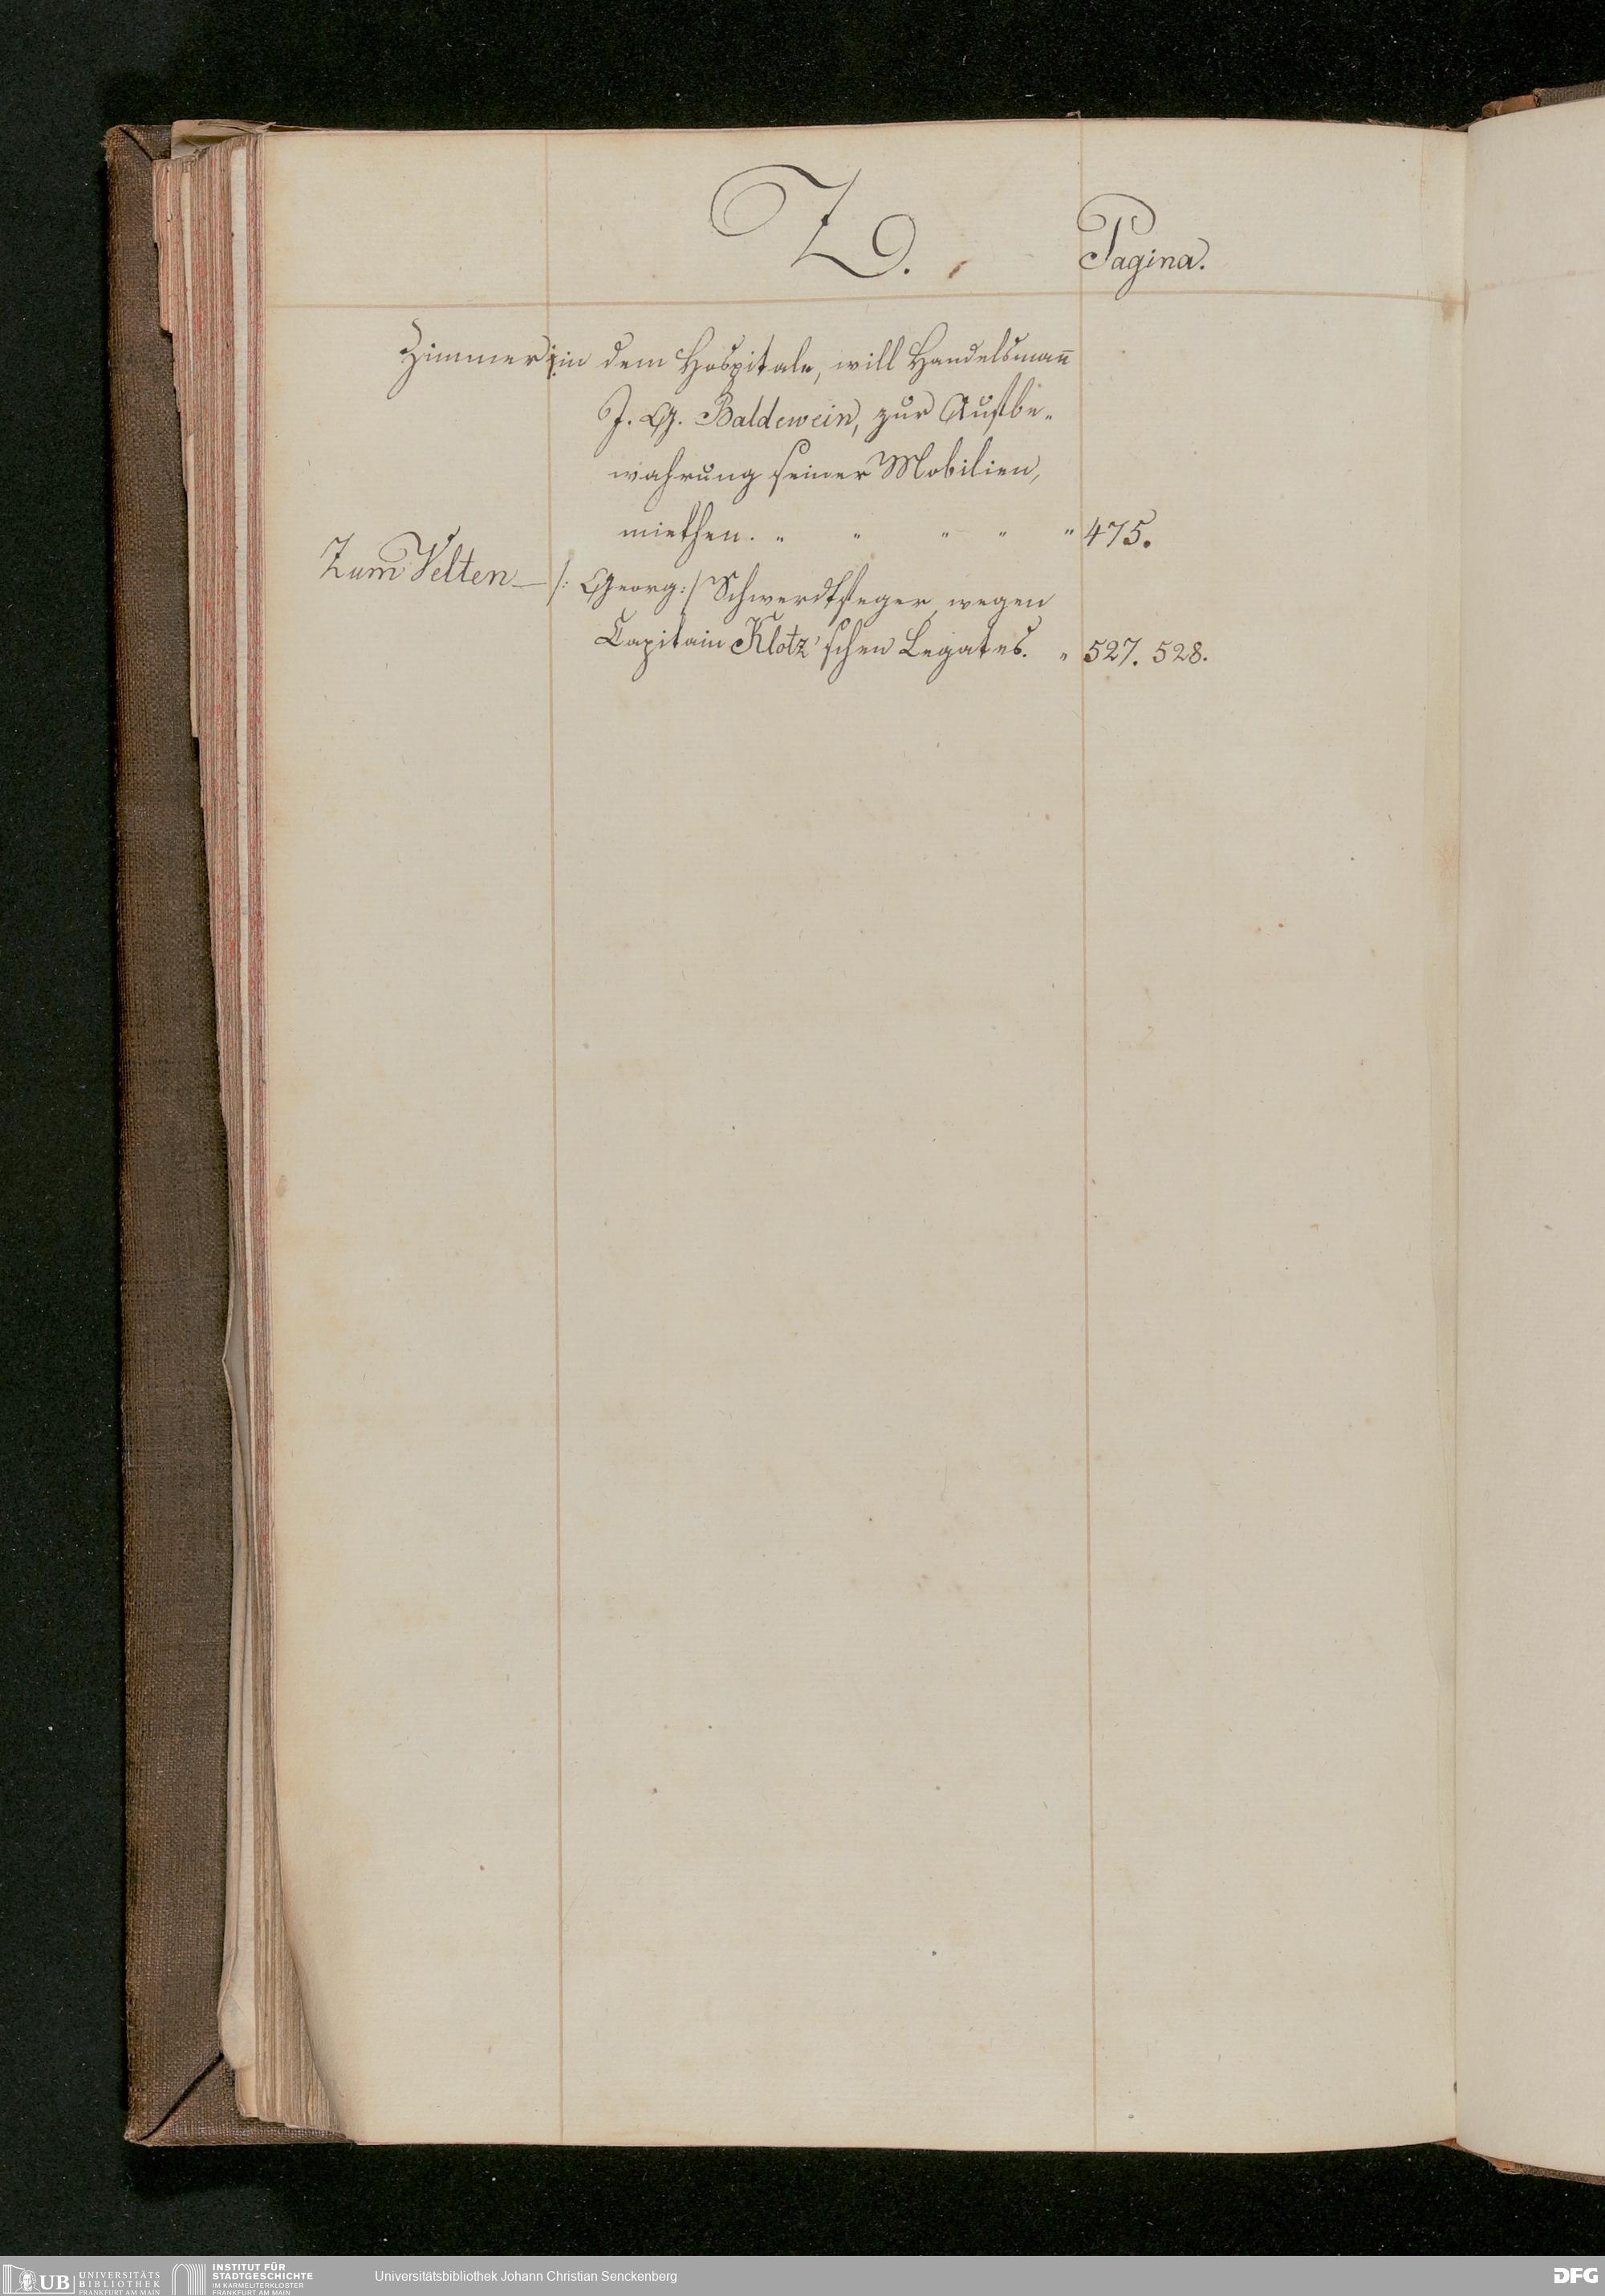 Z.
Pagina.
Zimmer in dem Hospitale, will Handelsmañ
J. G. Baldewein, zur Aufbe-
wahrung seiner Mobilien,
miethen. " " " " " 475.
Zum Velten — /: Georg :/ Schwerdtfeger wegen
Capitain Klotz'schen Legates. " 527. 528.
UB UNIVERSITÄTS BIBLIOTHEK FRANKFURT AM MAIN
INSTITUT FÜR STADTGESCHICHTE IM KARMELITERKLOSTER FRANKFURT AM MAIN
Universitätsbibliothek Johann Christian Senckenberg
DFG